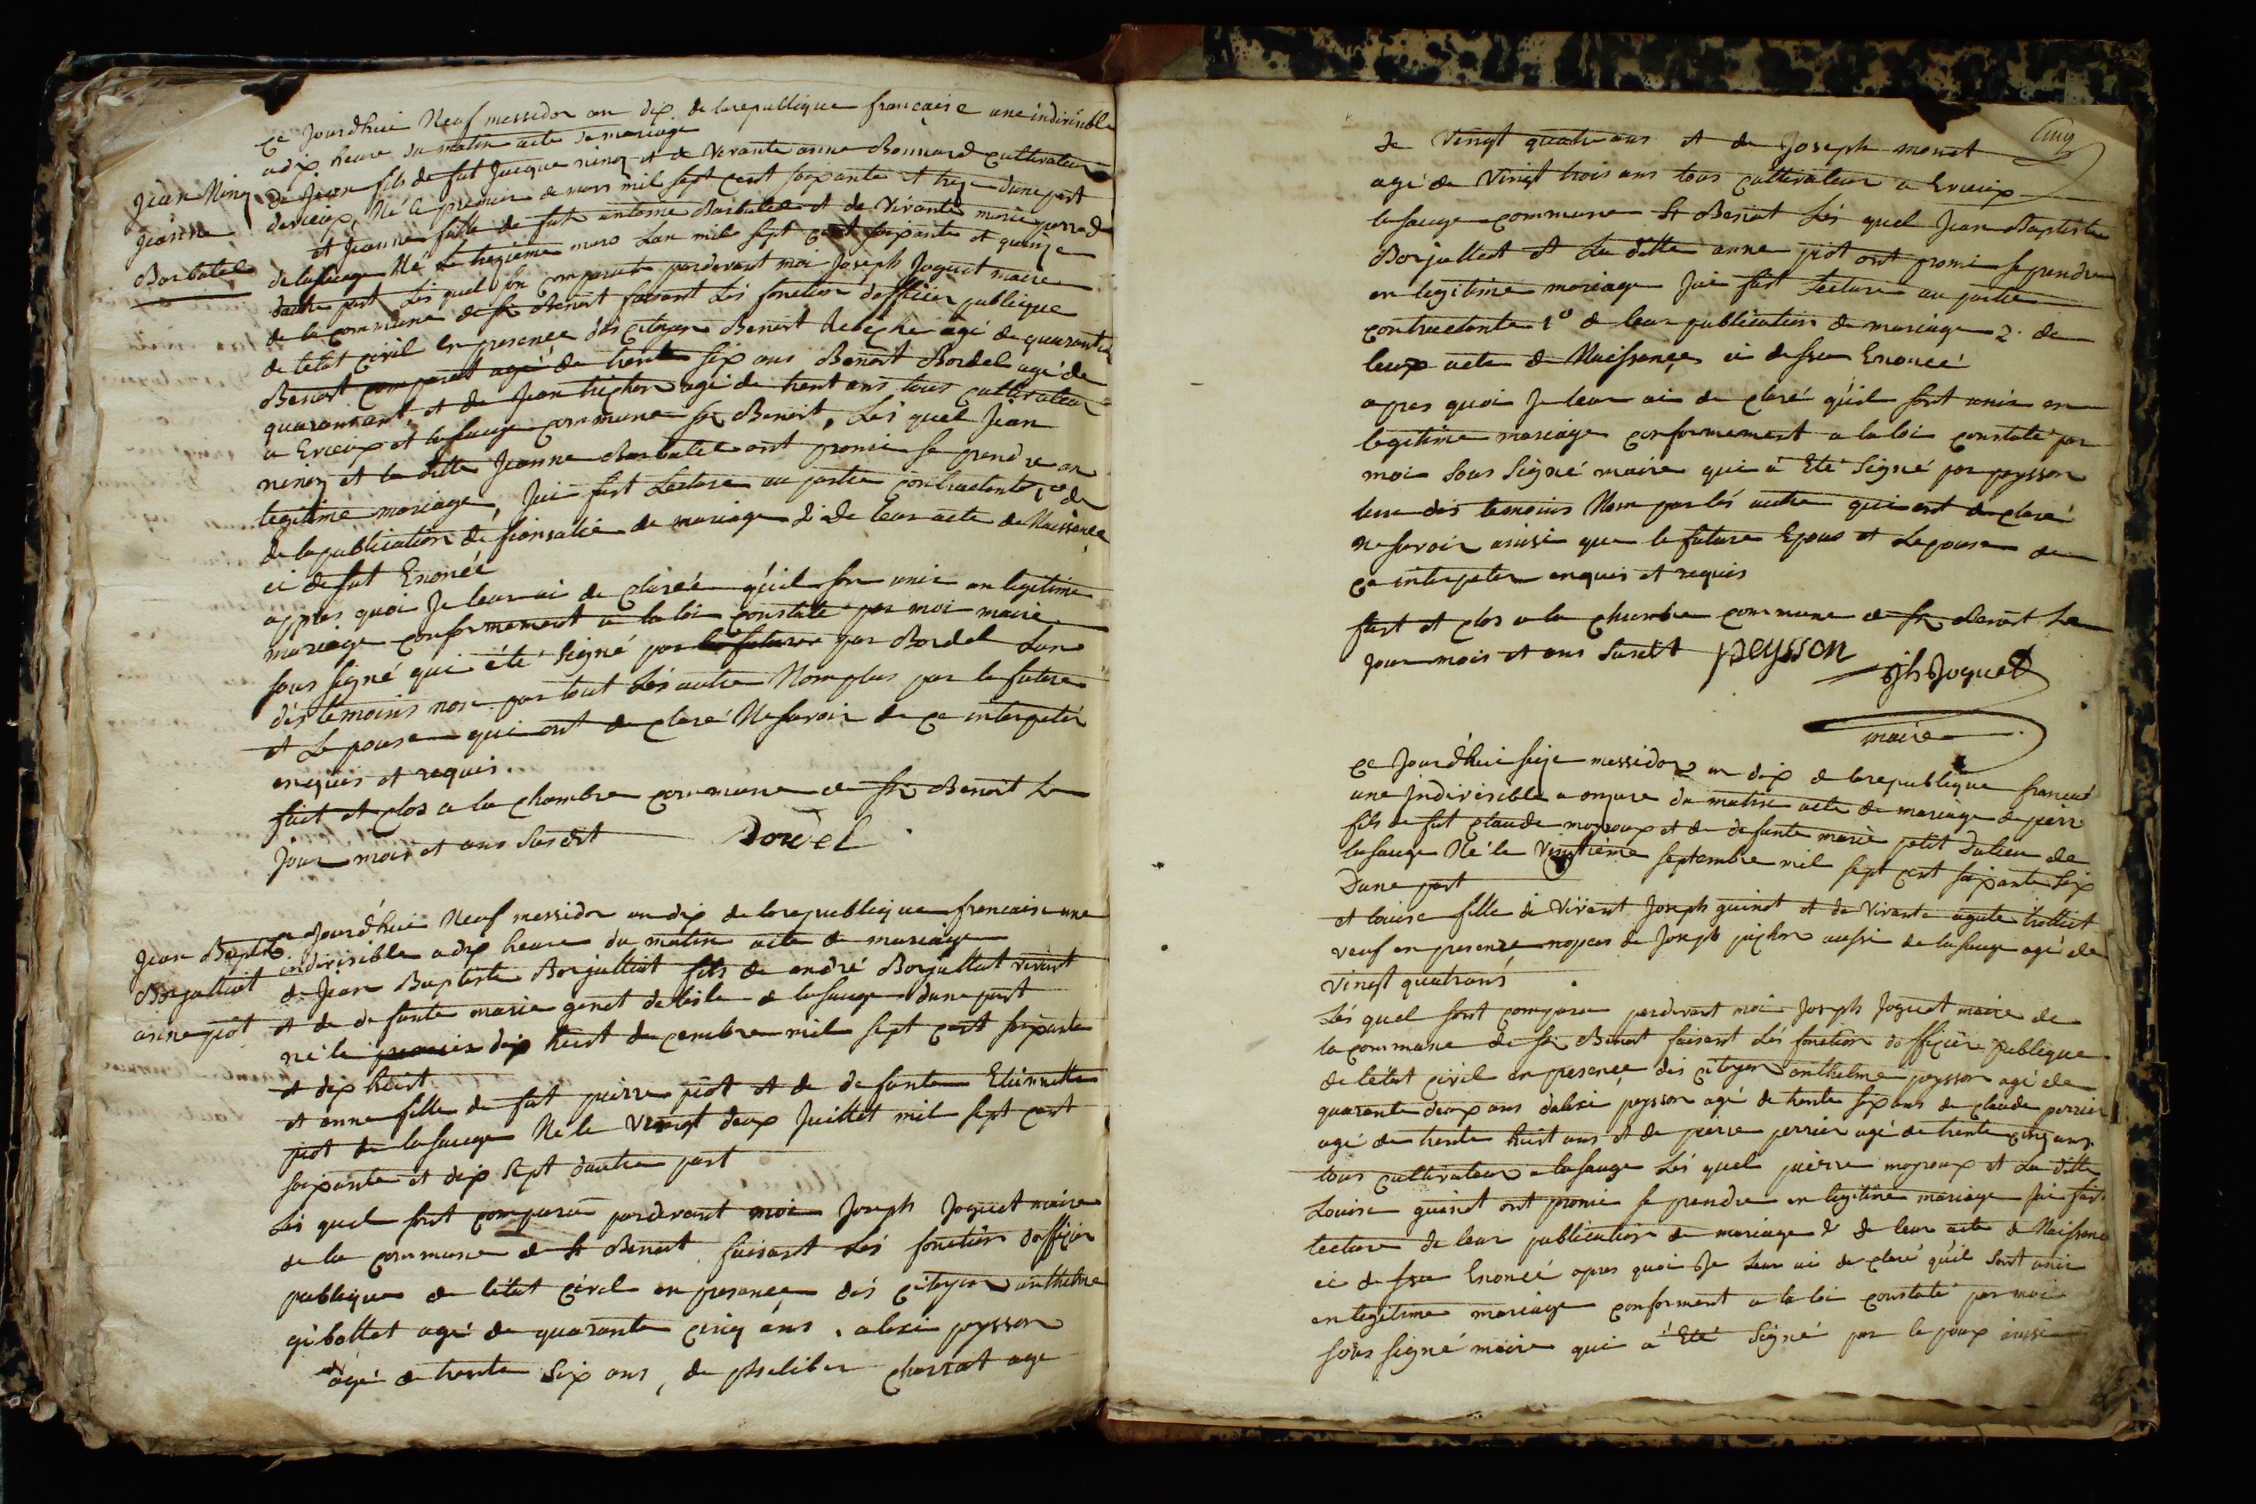 Ce jourdhui Neuf messidor an dix de la republique francaise une indivisible
a dix heure du matin acte de mariage
Jean Ninoz
Jeanne
Barbatel
De Jean fils de fut Jacque ninoz et de vivante anne Bonnard cultivateur
derieux, Né le premier de mars mil sept cent soixante et treze dune part
et Jeanne fille de fut antoine Barbatel et de vivante marie
de lasauge Né le treizieme mars Lan mil sept cent soixante et quinze
dautre part Lés quel son comparut pardevant moi Joseph Joguet maire
de la commune de St Benoit faisant Lés fonction dofficier publique
de letat civil en presence dés citoyen Benoit agé de quarante
Benoit agé de trente six ans Benoit Bordel agé de
quarant ans et de Jean agé de trent ans tous cultivateur
a Evieux et lasauge commune St Benoit, Lés quel Jean
ninoz et la ditte Jeanne Barbatel ont promi se prendre en
legitime mariage, Jai fait Lecture au partie contractante 1° de
de la publication de de mariage 2° de leur acte de Naissance
ci de fut Enoncé
appres quoi Je leur ai de claréé quil son unie en legitime
mariage conformement a la loi constaté par moi maire
sous signé qui été signé par le future par Bordel Lun
dés témoins non par tout Lés autre Nomplus par le future
et Lepouse qui ont de claré Ne savoir de ce interpeter
enquis et requis.
fait et clos a la chambre commune de St Benoit Le
Jour mois et ans susdit Bordel
Jean Baptiste
Borjalliat
anne piot
Ce Jourdhui Neuf messidor an dix de la republique francaise une
indivisible a dix heure du matin acte de mariage
de Jean Baptiste Borjalliat fils de andré Borjalliat vivant
et de de funte marie genet de lisle de lasauge dune part
né le premier dix huit de cembre mil sept cent soixante
et dix huit
et anne fille de fut pierre piot et de de funte Etiennette
piot de lasauge Né le vingt deux Juillet mil sept cent
soixante et dix sept dautre part
Lés quel sont comparu pardevant moi Joseph Joguet maire
de la commune de St Benoit faisant Lés fonction dofficier
publique de létat civil en presence dés citoyen anthelme
gibollet agé de quarante cinq ans, alexi peysson
agé de trente six ans, de philiber charvat age
Cinq
de vingt quatre ans et de Joseph monet
agé de vingt trois ans tous cultivateur a Evieux
lasauge commune St Benoit Lés quel Jean Baptiste
Borjalliat et La ditte anne piot ont promi se prendre
en legitime mariage Jai fait Lecture au partie
contractante 1° de leur publication de mariage 2. de
leux acte de Naissance ci dessu Enoncé
apres quoi Je leur ai de claré quil sont unie en
legitime mariage conformement a la loi constaté par
moi sous signé maire qui à Eté signé par peysson
lun dés temoins Non par lés autre qui ont de claré
ne savoir ainsi que le future Epous et Lepouse de
ce interpeter enquis et requis
fait et clos a la chambre commune de St Benoit Le
Jour mois et ans susdit peysson
Jh Joguet
maire
Ce Jourdhui seize messidor an dix de la republique francaise
une Indivisible a onzure du matin acte de mariage de pierr
fils de fut claude moyroux et de defunte marie petit Dulieu de
lasauge Né le vingtième septembre mil sept cent soixante six
Dune part
et louise fille de vivant Joseph guinet et de vivante agate
veuf en presente nopces de Joseph pichon aussi de lasauge agé de
vingt quatrans
Lés quel sont compara pardevant moi Joseph Joguet maire de
la commune de St Benoit faisant Lés fonction dofficier publique
de létat civil en presence dés citoyen anthelme peysson agé de
quarante deux ans dalexi peysson agé de trente six ans de claude perrier
agé de trente huit ans et de pierre perrier agé de trente cinq ans
tous cultivateur a lasauge Lés quel pierre moyroux et La ditte
Louise guinet ont promi se prendre en legitime mariage Jai fait
lecture de leur publication de mariage & de leur acte de Naissance
ci dessu Enoncé apres quoi Je leur ai de claré quil sont unie
en legitime mariage conforment a la loi constaté par moi
sous signé maire qui à Eté signé par lepoux ainsi